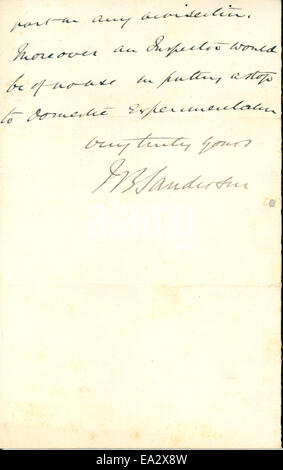 part in any vivisection.
Moreover an Inspector would
be of no use in putting a stop
to domestic experimentation
very truly yours
J B Sanderson
alamy
alamy stock photo
EA2X8W
www.alamy.com